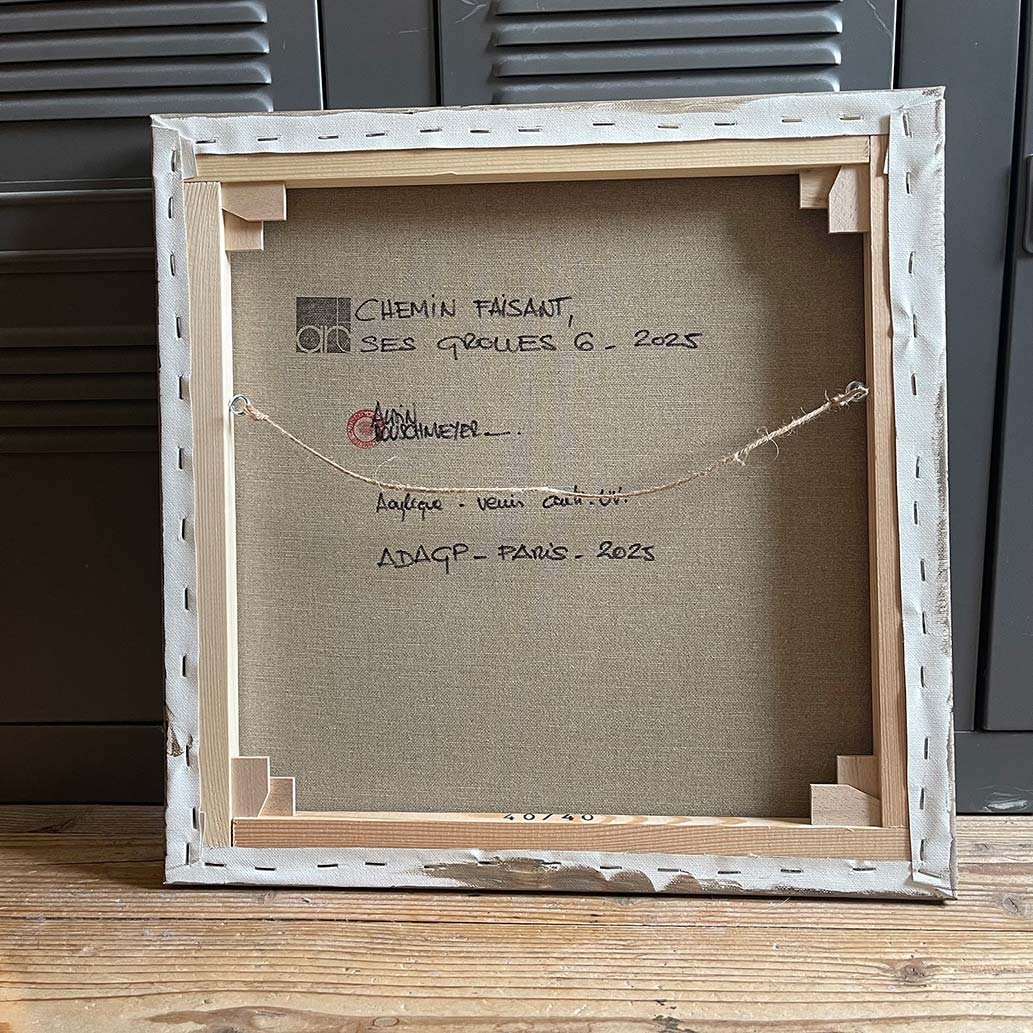 CHEMIN FAISANT,
SES GROLLES 6 - 2025
ALAIN
ROUSCHMEYER
Acrylique - vernis anti-UV.
ADAGP - PARIS - 2025
40/40